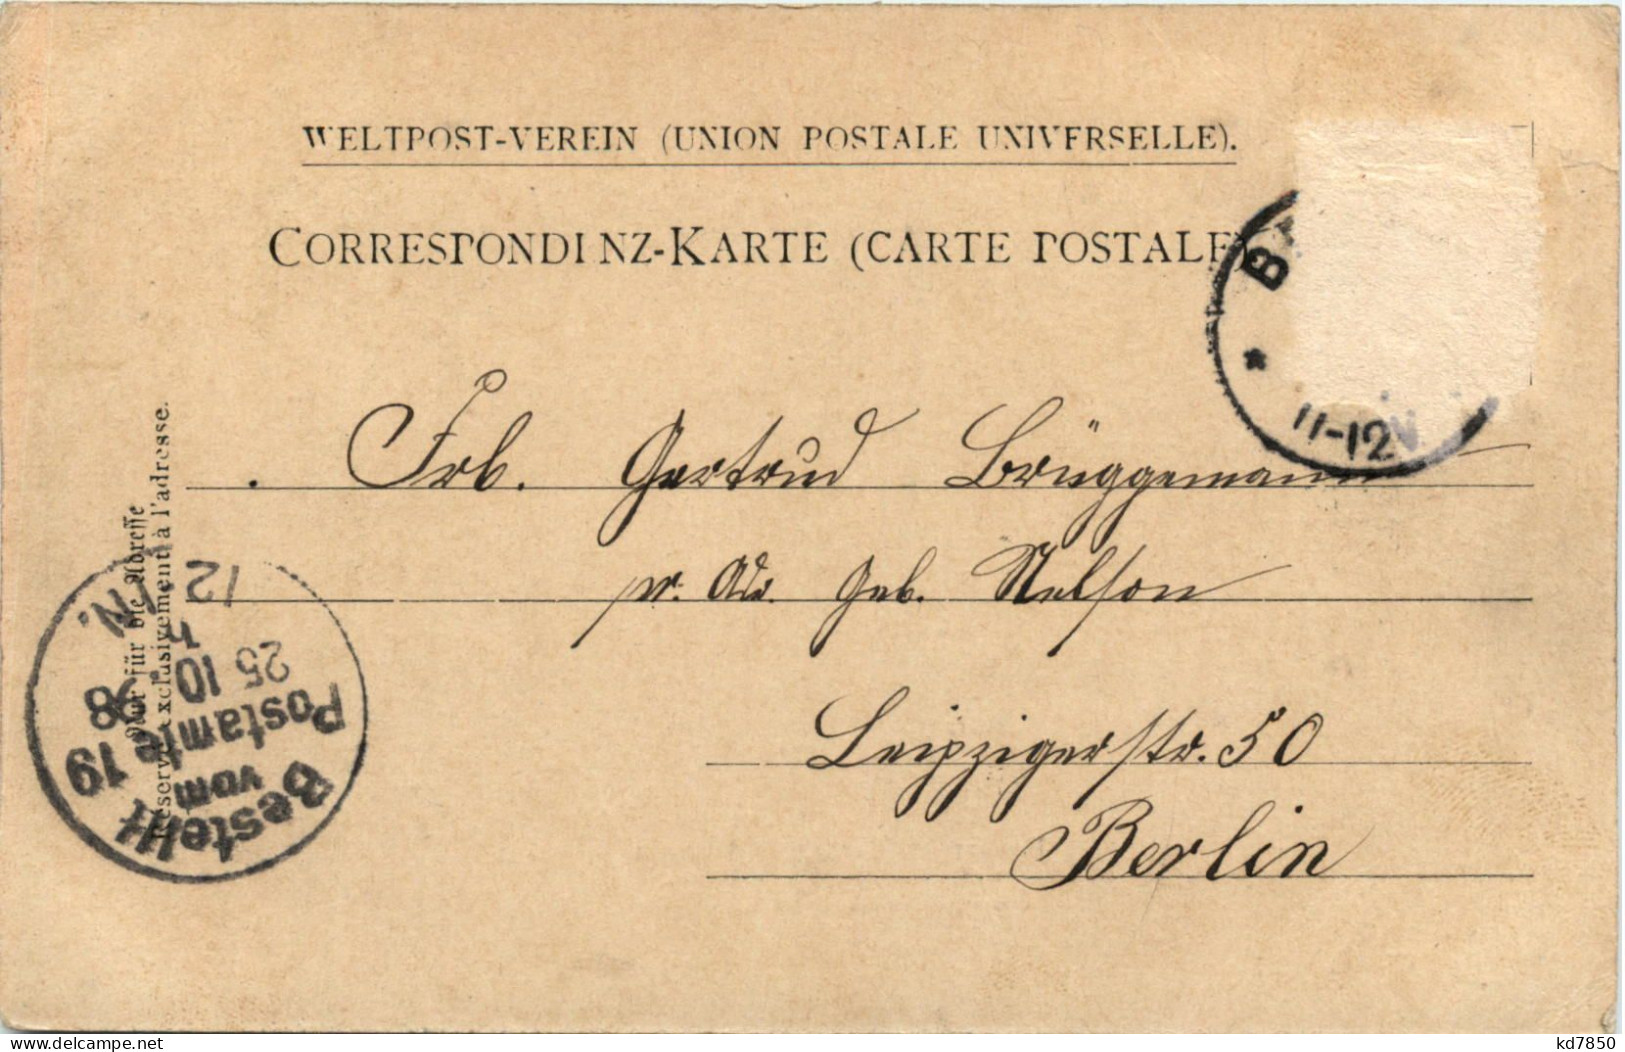 WELTPOST-VEREIN (UNION POSTALE UNIVERSELLE).
CORRESPONDENZ-KARTE (CARTE POSTALE)
BA
*
11-12V
Gertrud Brüggemann
geb. Nelson
Leipzigerstr. 50
Berlin
Nur für die Adresse
Réservé exclusivement à l'adresse.
Bestellt
vom
Postamte 19
25 10 98
12 IN.
kd7850